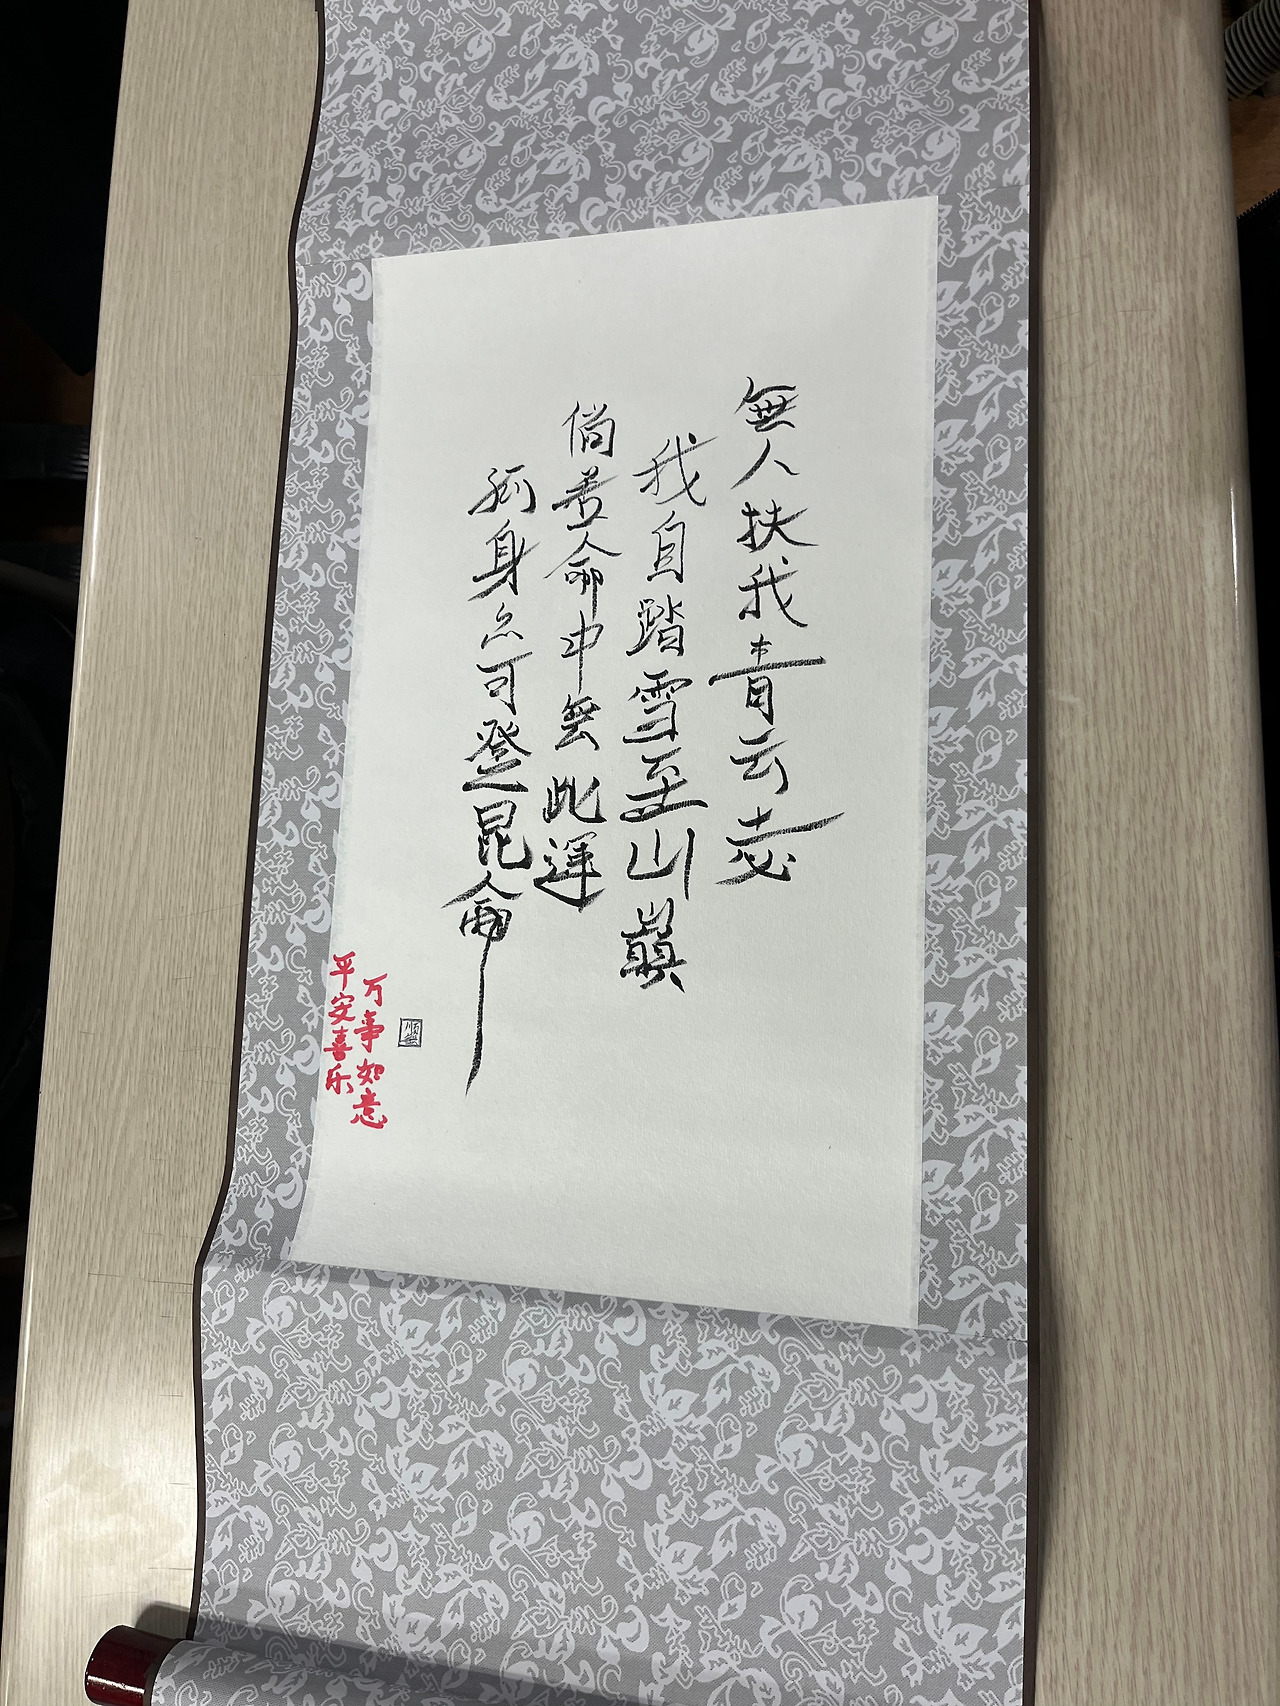 無人扶我青云志
我自踏雪至山巔
倘若命中無此運
孤身亦可登昆侖
万事如意
平安喜乐